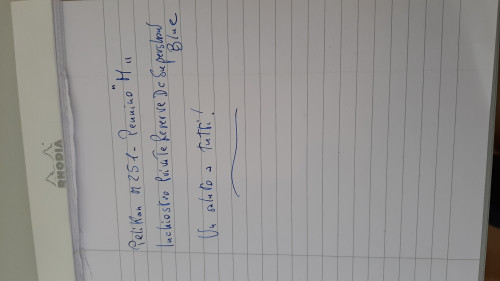 RHODIA
Pelikan M 251 - Pennino "M"
Inchiostro Private Reserve DC Supershow
Blue
Un saluto a tutti!